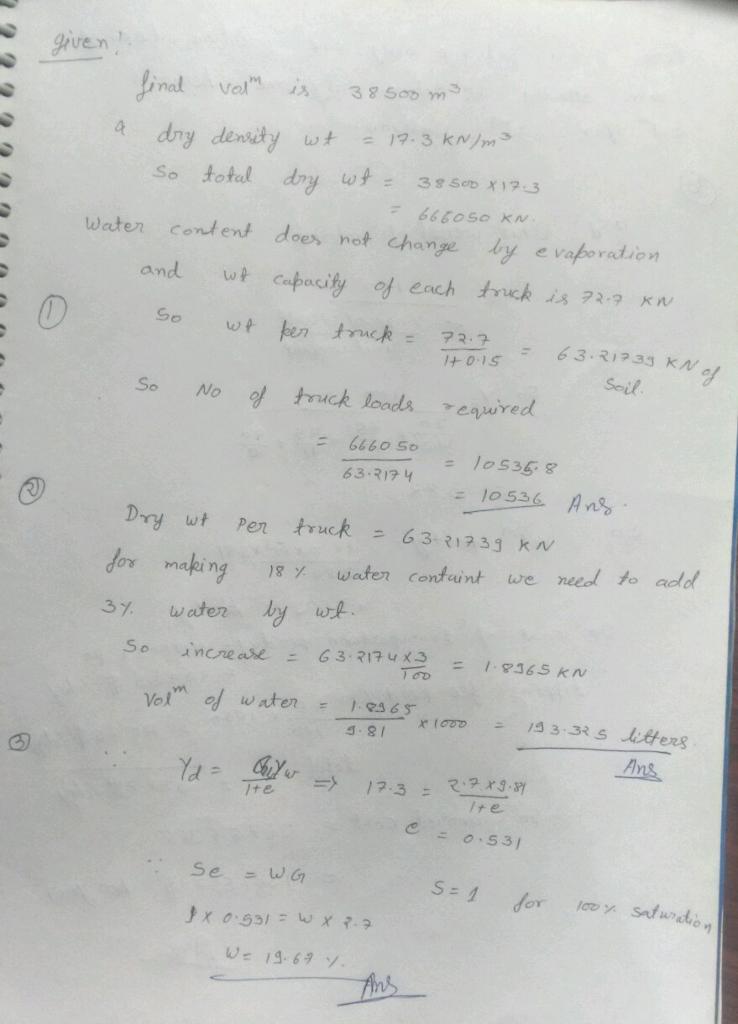 given!
final volm is 38500 m3
a dry density wt = 17.3 KN/m3
So total dry wt = 38500 X 17.3
= 666050 KN.
Water content does not change by evaporation
and wt capacity of each truck is 72.7 KN
① So wt per truck = 72.7 / 1+0.15 = 63.21739 KN of Soil.
So No of truck loads required
= 666050 / 63.2174 = 10535.8
= 10536 Ans.
② Dry wt Per truck = 63.21739 KN
for making 18 % water containt we need to add
3% water by wt.
So increase = 63.2174 x 3 / 100 = 1.8965 KN
Volm of water = 1.8965 / 9.81 x 1000 = 193.325 litters
Ans
③ ∴ γd = Gγw / 1+e => 17.3 = 2.7 x 9.81 / 1+e
e = 0.531
∵ Se = WG S=1 for 100% saturation
1 X 0.531 = W X 2.7
W = 19.67 %.
Ans